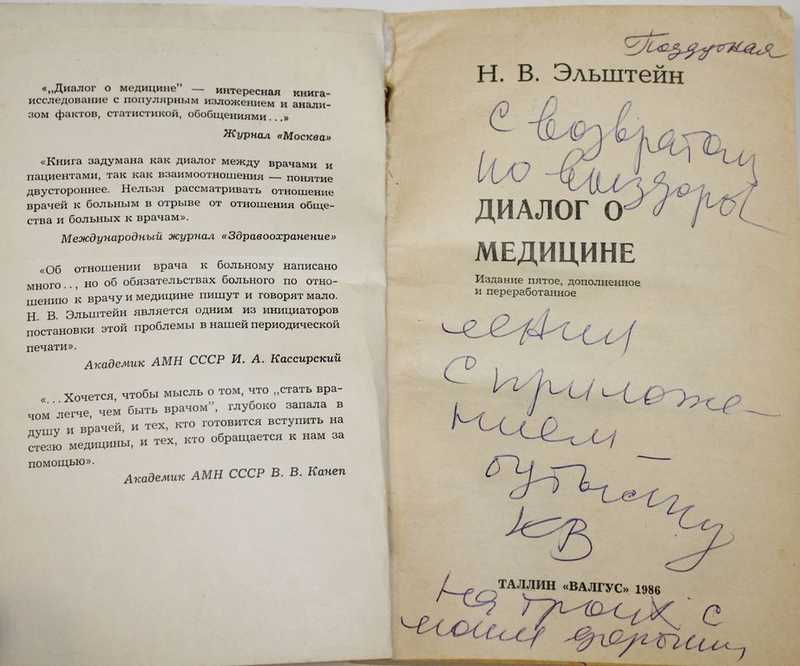 «„Диалог о медицине" — интересная книга-
исследование с популярным изложением и анали-
зом фактов, статистикой, обобщениями...»
Журнал «Москва»
«Книга задумана как диалог между врачами и
пациентами, так как взаимоотношения — понятие
двустороннее. Нельзя рассматривать отношение
врачей к больным в отрыве от отношения обще-
ства и больных к врачам».
Международный журнал «Здравоохранение»
«Об отношении врача к больному написано
много.., но об обязательствах больного по отно-
шению к врачу и медицине пишут и говорят мало.
Н. В. Эльштейн является одним из инициаторов
постановки этой проблемы в нашей периодической
печати».
Академик АМН СССР И. А. Кассирский
«...Хочется, чтобы мысль о том, что „стать вра-
чом легче, чем быть врачом", глубоко запала в
душу и врачей, и тех, кто готовится вступить на
стезю медицины, и тех, кто обращается к нам за
помощью».
Академик АМН СССР В. В. Канеп
Н. В. Эльштейн
с возвратом
по выздоров
ДИАЛОГ О
МЕДИЦИНЕ
Издание пятое, дополненное
и переработанное
лении
с приложе-
нием —
бутылку
КВ
ТАЛЛИН «ВАЛГУС» 1986
на троих с
моим